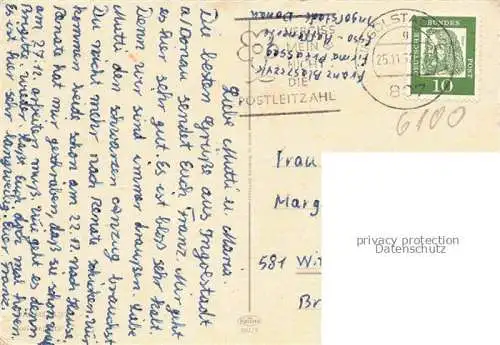 Liebe Mutti u. Maria
Die besten Grüße aus Ingolstadt
a/Donau sendet Euch Franz. Mir geht
es hier sehr gut. Es ist blos sehr kalt.
Denn wir sind immer draußen. Liebe
Mutti den schwarzen anzug brauchst
Du nicht mehr nach Renate schicken. Wir
kommen beide schon am 22.12. nach Hause.
Renate hat mir geschrieben, daß sie schon
am 27.12. arbeiten muß. Wie geht es denn
Brigitte wieder. Lasst Euch doch mal hören.
Es ist hier sehr langweilig. Euer Franz.
Franz
Firma
Ingolstadt Donau
MEIN
DIE
POSTLEITZAHL
25.11.
807
DEUTSCHE BUNDES POST
10
6100
Frau
Marg
581 Wit
Br
privacy protection
Datenschutz